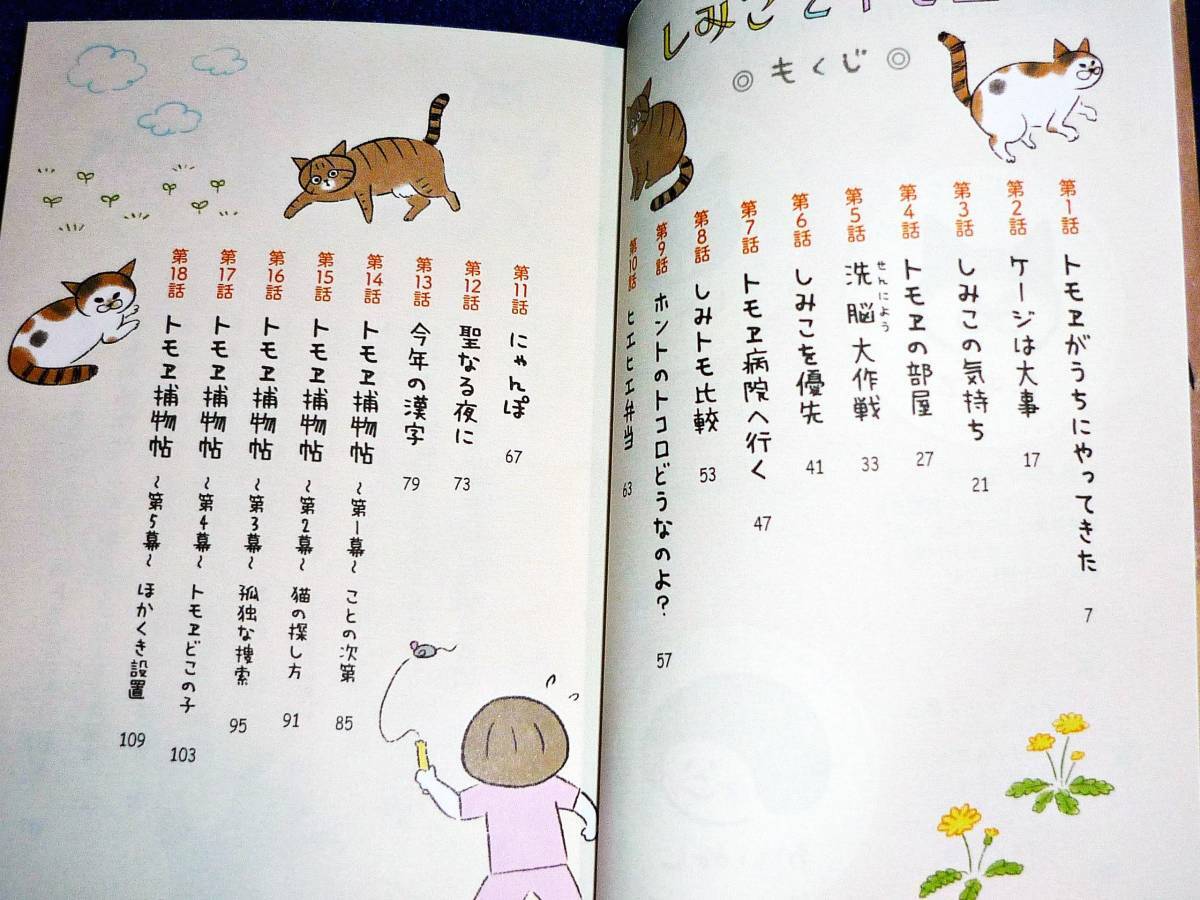 しみことトモヱ
◎もくじ◎
第1話 トモヱがうちにやってきた 7
第2話 ケージは大事 17
第3話 しみこの気持ち 21
第4話 トモヱの部屋 27
第5話 洗脳大作戦 33
せんにょう
第6話 しみこを優先 41
第7話 トモヱ病院へ行く 47
第8話 しみトモ比較 53
第9話 ホントのトコロどうなのよ? 57
第10話 ヒエヒエ弁当 63
第11話 にゃんぽ 67
第12話 聖なる夜に 73
第13話 今年の漢字 79
第14話 トモヱ捕物帖 ~第1幕~ ことの次第 85
第15話 トモヱ捕物帖 ~第2幕~ 猫の探し方 91
第16話 トモヱ捕物帖 ~第3幕~ 孤独な捜索 95
第17話 トモヱ捕物帖 ~第4幕~ トモヱどこの子 103
第18話 トモヱ捕物帖 ~第5幕~ ほかくき設置 109